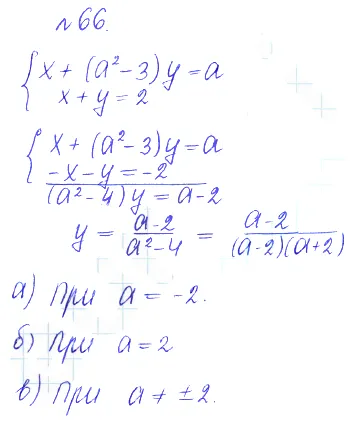 №66.
{ x + (a² - 3)y = a
x + y = 2
{ x + (a² - 3)y = a
-x - y = -2
(a² - 4)y = a - 2
y = (a-2)/(a²-4) = (a-2)/((a-2)(a+2))
а) при a = -2.
б) при a = 2
в) при a ≠ ±2.